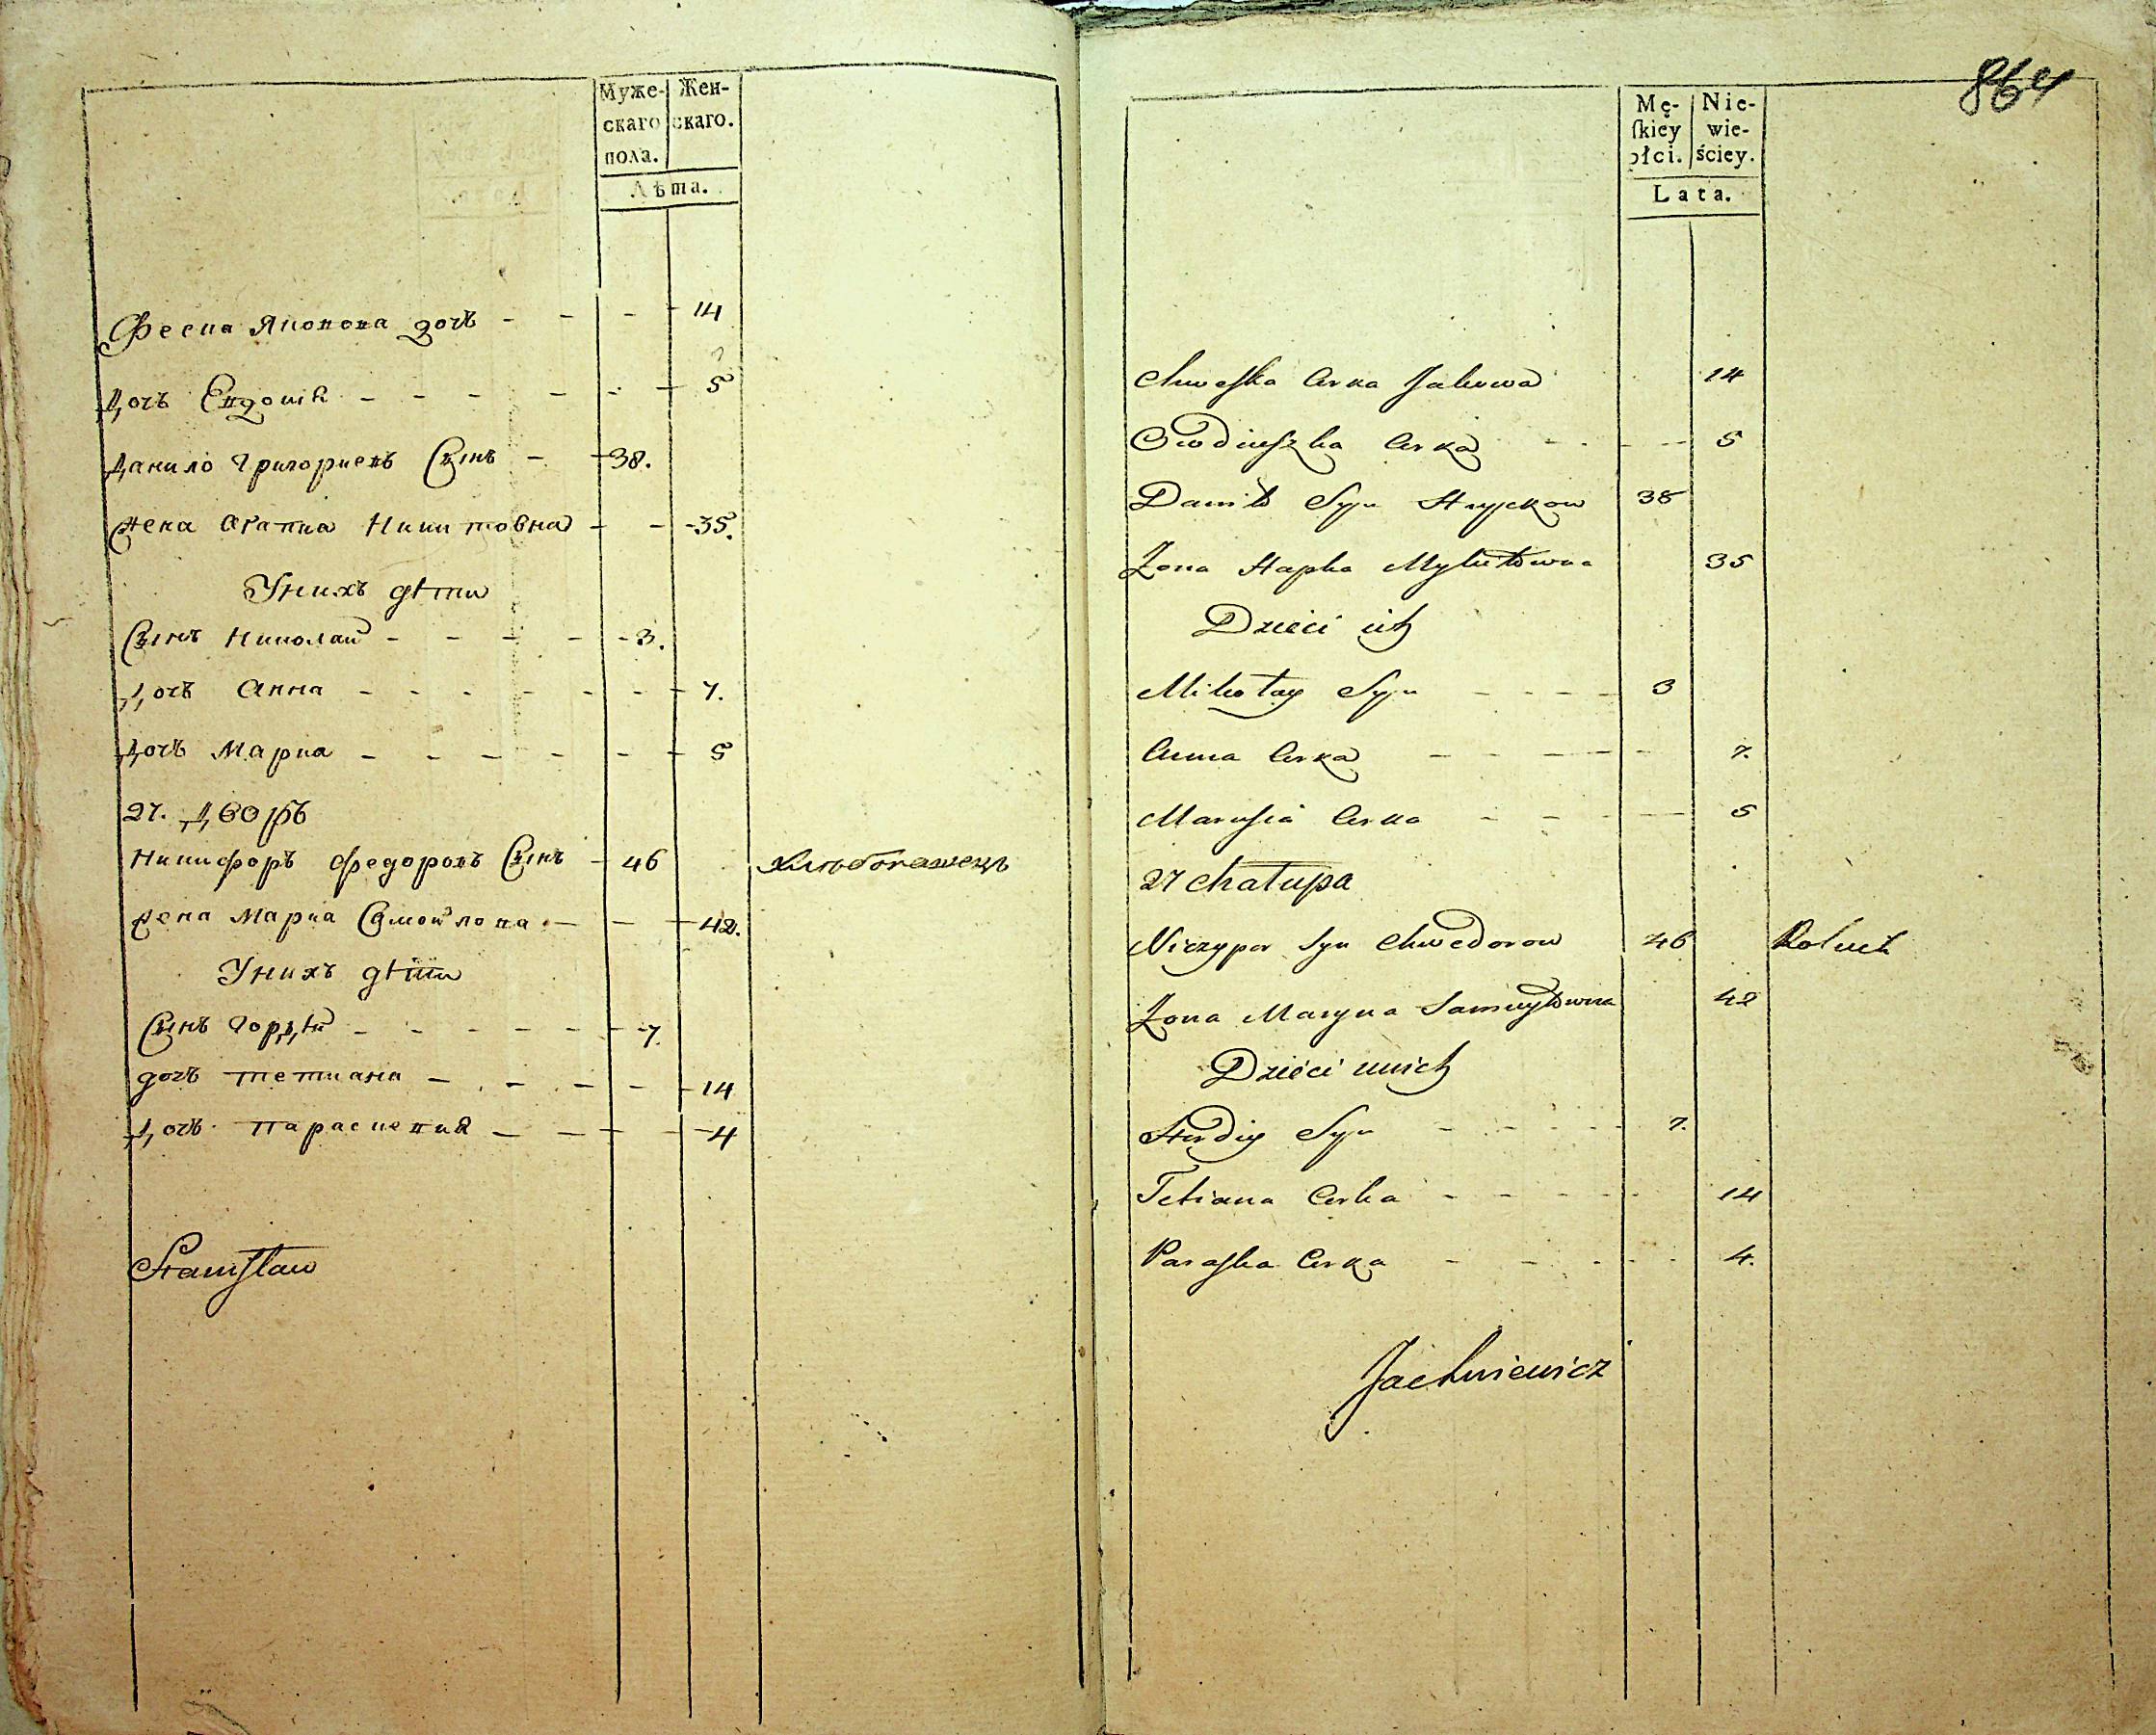 Муже-
скаго
пола.
Жен-
скаго.
Лѣта.
Феска Яковова дочь - - - 14
Дочь Евдокія - - - - - 5
Данило Григориевъ Сынъ - 38.
Жена Агапиа Никитовна - - 35.
У нихъ дѣти
Сынъ Николай - - - - 3.
Дочь Анна - - - - - - 7.
Дочь Мариа - - - - - 5
27. Дворъ
Никифоръ Федоровъ Сынъ - 46 Хлѣбопашецъ
Жена Мариа Самойлова - - 42.
У нихъ дѣти
Сынъ Гордѣй - - - - - 7.
дочь Тетиана - - - - 14
Дочь Параскевия - - - 4
Stanisław
864
Mę-
skiey
płci.
Nie-
wie-
ściey.
Lata.
Chweska Curka Jakowa 14
Owdiuszka Curka - - - - 5
Daniło Syn Hryckow 38
Żona Hapka Mykitowna 35
Dzieci ich
Mikołay Syn - - - - 3
Anna Curka - - - - - 7.
Marusia Curka - - - - 5
27 Chałupa
Niczypor Syn Chwedorow 46 Rolnik
Żona Maryna Samuyłowna 42
Dzieci unich
Hordiy Syn - - - - - 7.
Tetiana Curka - - - - - 14
Paraska Curka - - - - - 4.
Jachniewicz